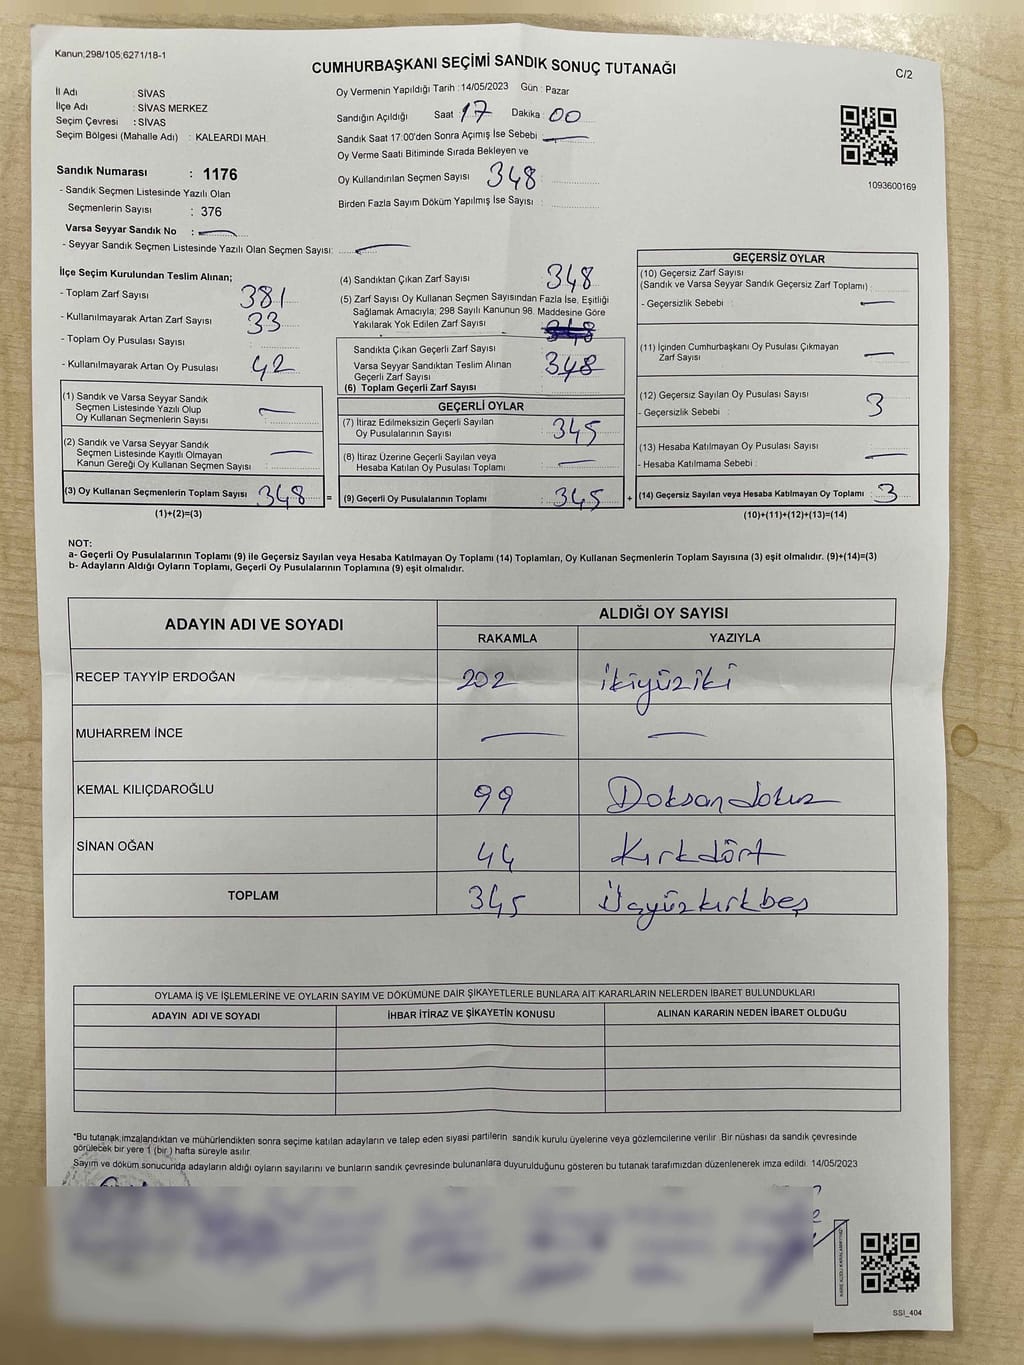 Kanun;298/105;6271/18-1
CUMHURBAŞKANI SEÇİMİ SANDIK SONUÇ TUTANAĞI
C/2
İl Adı : SİVAS
İlçe Adı : SİVAS MERKEZ
Seçim Çevresi : SİVAS
Seçim Bölgesi (Mahalle Adı) : KALEARDI MAH.
Sandık Numarası : 1176
- Sandık Seçmen Listesinde Yazılı Olan
Seçmenlerin Sayısı : 376
Varsa Seyyar Sandık No : —
- Seyyar Sandık Seçmen Listesinde Yazılı Olan Seçmen Sayısı: —
Oy Vermenin Yapıldığı Tarih : 14/05/2023 Gün : Pazar
Sandığın Açıldığı Saat : 17 Dakika : 00
Sandık Saat 17:00'den Sonra Açımış İse Sebebi —
Oy Verme Saati Bitiminde Sırada Bekleyen ve
Oy Kullandırılan Seçmen Sayısı 348
Birden Fazla Sayım Döküm Yapılmış İse Sayısı :
1093600169
İlçe Seçim Kurulundan Teslim Alınan;
- Toplam Zarf Sayısı 381
- Kullanılmayarak Artan Zarf Sayısı 33
- Toplam Oy Pusulası Sayısı :
- Kullanılmayarak Artan Oy Pusulası 42
(1) Sandık ve Varsa Seyyar Sandık
Seçmen Listesinde Yazılı Olup
Oy Kullanan Seçmenlerin Sayısı : —
(2) Sandık ve Varsa Seyyar Sandık
Seçmen Listesinde Kayıtlı Olmayan
Kanun Gereği Oy Kullanan Seçmen Sayısı : —
(3) Oy Kullanan Seçmenlerin Toplam Sayısı 348 =
(1)+(2)=(3)
(4) Sandıktan Çıkan Zarf Sayısı 348
(5) Zarf Sayısı Oy Kullanan Seçmen Sayısından Fazla İse, Eşitliği
Sağlamak Amacıyla; 298 Sayılı Kanunun 98. Maddesine Göre
Yakılarak Yok Edilen Zarf Sayısı
Sandıkta Çıkan Geçerli Zarf Sayısı
Varsa Seyyar Sandıktan Teslim Alınan
Geçerli Zarf Sayısı 348
(6) Toplam Geçerli Zarf Sayısı
GEÇERLİ OYLAR
(7) İtiraz Edilmeksizin Geçerli Sayılan
Oy Pusulalarının Sayısı : 345
(8) İtiraz Üzerine Geçerli Sayılan veya
Hesaba Katılan Oy Pusulası Toplamı : —
(9) Geçerli Oy Pusulalarının Toplamı : 345 +
GEÇERSİZ OYLAR
(10) Geçersiz Zarf Sayısı
(Sandık ve Varsa Seyyar Sandık Geçersiz Zarf Toplamı) :
- Geçersizlik Sebebi : —
(11) İçinden Cumhurbaşkanı Oy Pusulası Çıkmayan
Zarf Sayısı : —
(12) Geçersiz Sayılan Oy Pusulası Sayısı :
- Geçersizlik Sebebi : 3
(13) Hesaba Katılmayan Oy Pusulası Sayısı :
- Hesaba Katılmama Sebebi : —
(14) Geçersiz Sayılan veya Hesaba Katılmayan Oy Toplamı : 3
(10)+(11)+(12)+(13)=(14)
NOT:
a- Geçerli Oy Pusulalarının Toplamı (9) ile Geçersiz Sayılan veya Hesaba Katılmayan Oy Toplamı (14) Toplamları, Oy Kullanan Seçmenlerin Toplam Sayısına (3) eşit olmalıdır. (9)+(14)=(3)
b- Adayların Aldığı Oyların Toplamı, Geçerli Oy Pusulalarının Toplamına (9) eşit olmalıdır.
ADAYIN ADI VE SOYADI
ALDIĞI OY SAYISI
RAKAMLA YAZIYLA
RECEP TAYYİP ERDOĞAN 202 ikiyüziki
MUHARREM İNCE — —
KEMAL KILIÇDAROĞLU 99 Doksandokuz
SİNAN OĞAN 44 Kırkdört
TOPLAM 345 Üçyüzkırkbeş
OYLAMA İŞ VE İŞLEMLERİNE VE OYLARIN SAYIM VE DÖKÜMÜNE DAİR ŞİKAYETLERLE BUNLARA AİT KARARLARIN NELERDEN İBARET BULUNDUKLARI
ADAYIN ADI VE SOYADI İHBAR İTİRAZ VE ŞİKAYETİN KONUSU ALINAN KARARIN NEDEN İBARET OLDUĞU
*Bu tutanak imzalandıktan ve mühürlendikten sonra seçime katılan adayların ve talep eden siyasi partilerin sandık kurulu üyelerine veya gözlemcilerine verilir. Bir nüshası da sandık çevresinde
görülecek bir yere 1 (bir) hafta süreyle asılır.
Sayım ve döküm sonucunda adayların aldığı oyların sayılarını ve bunların sandık çevresinde bulunanlara duyurulduğunu gösteren bu tutanak tarafımızdan düzenlenerek imza edildi. 14/05/2023
SSI_404